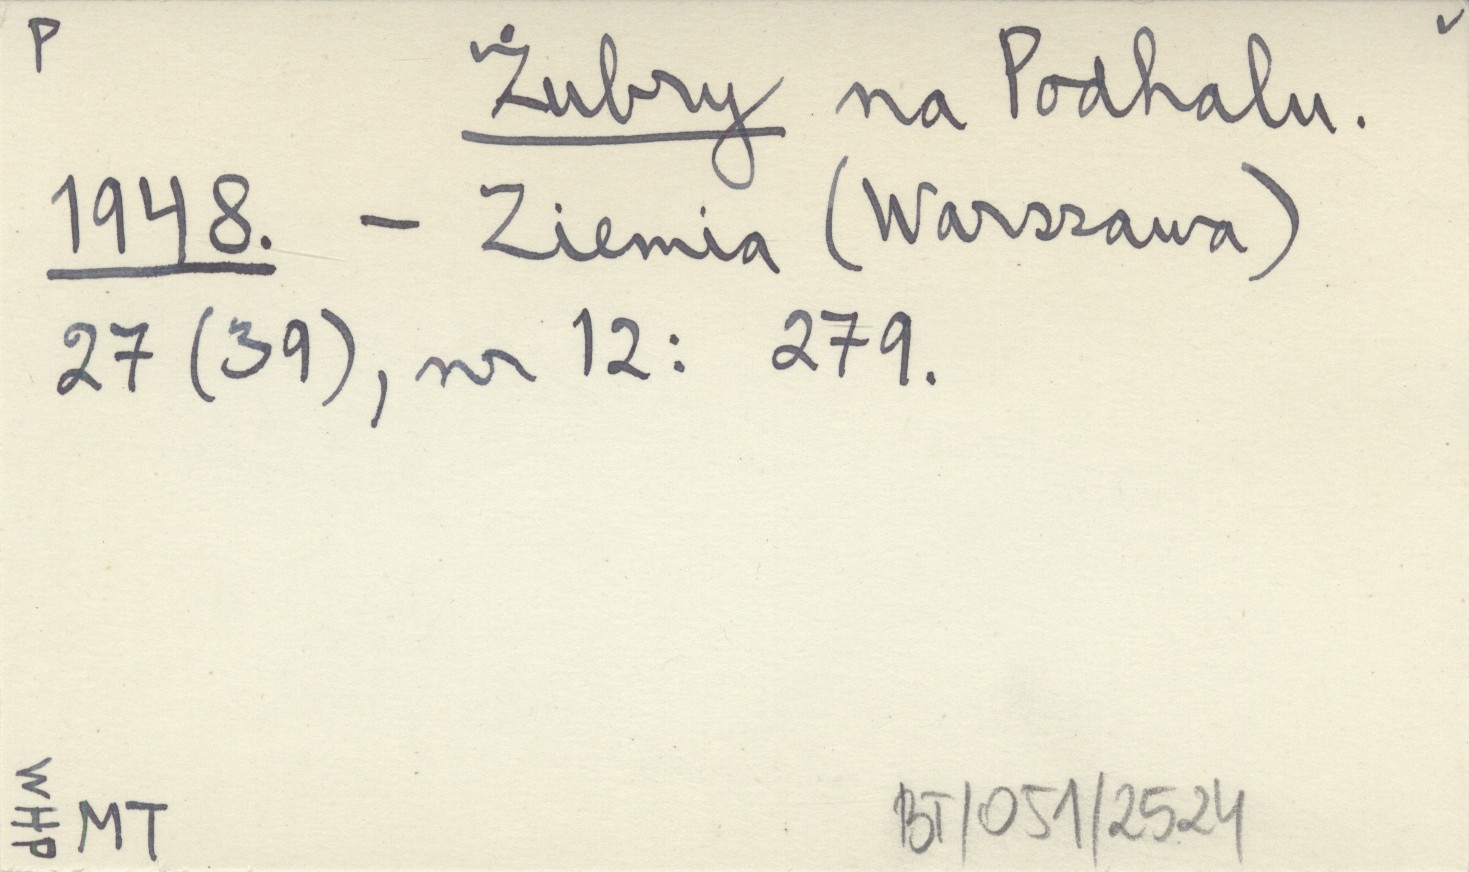 P
Żubry na Podhalu.
1948. – Ziemia (Warszawa)
27 (39), nr 12: 279.
WHP
MT
BT/051/2524